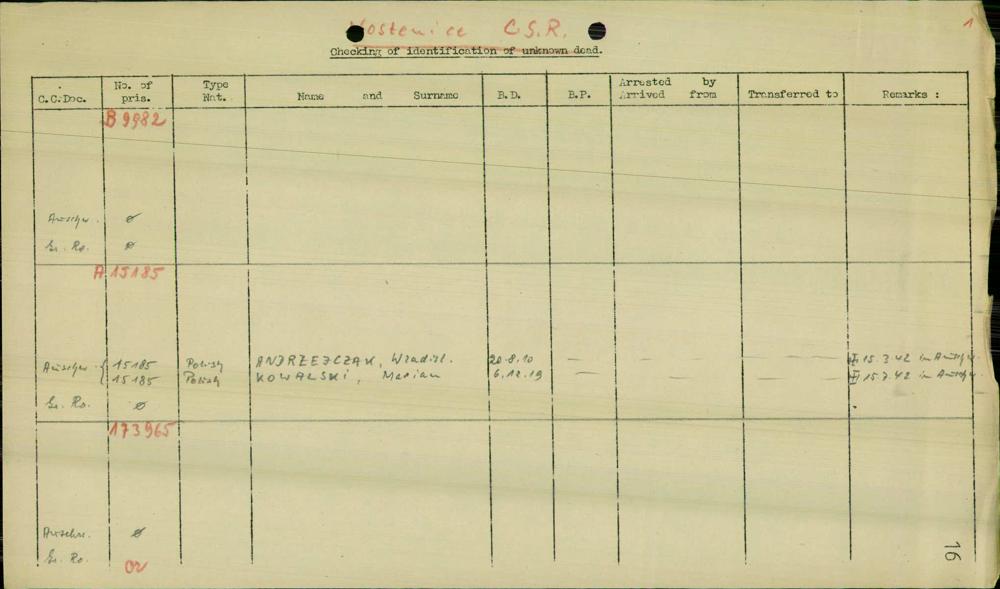 Kostenice C.S.R. 1
Checking of identification of unknown dead.
C.C.Doc. No. of pris. Type Nat. Name and Surname B.D. B.P. Arrested by Arrived from Transferred to Remarks :
B 9982
Auschw. ø
Gr. Ro. ø
A 15185
Auschw. { 15185 Polish ANDRZEJCZAK, Wladisl. 20.8.10 — — — — 15.3.42 in Auschw.
15185 Polish KOWALSKI, Marian 6.12.19 — — — — 15.7.42 in Auschw.
Gr. Ro. ø
173965
Auschw. ø
Gr. Ro.
16